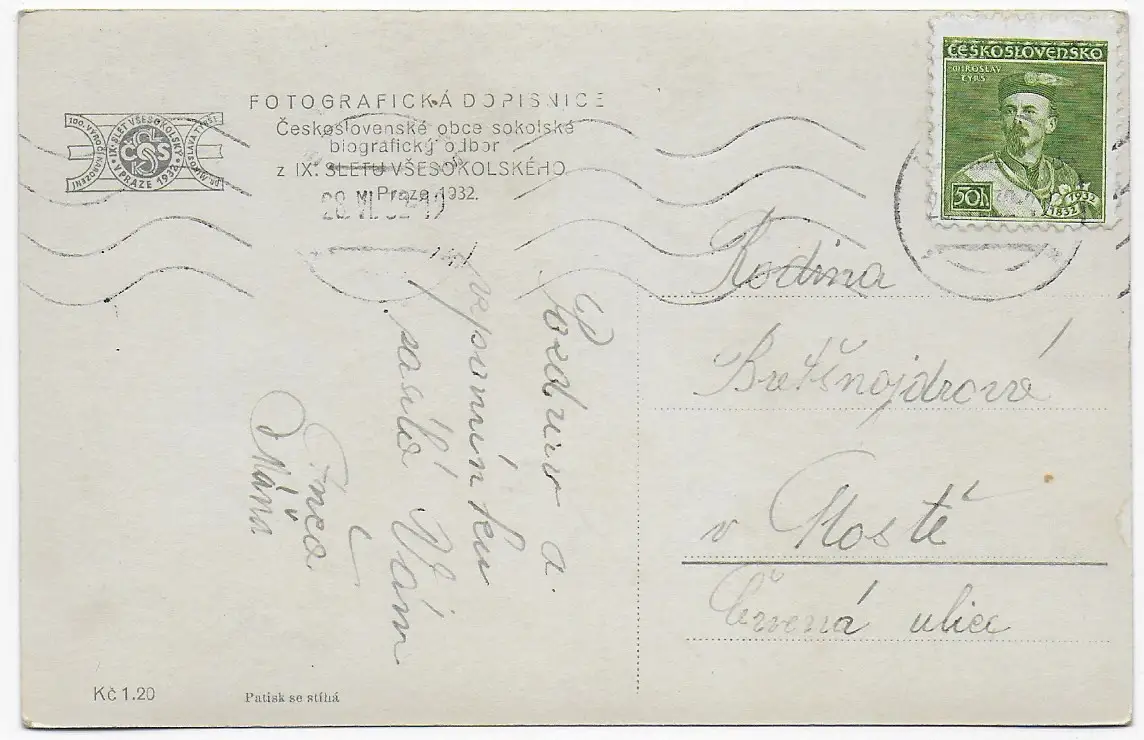 FOTOGRAFICKÁ DOPISNICE
Československé obce sokolské
biografický odbor
z IX. SLETU VŠESOKOLSKÉHO
v Praze 1932.
IX. SLET VŠESOKOLSKÝ
V PRAZE 1932
ČOS
100. VÝROČÍ NAROZENÍ
DR. MIROSLAVA TYRŠE
28.VI.32-19
ČESKOSLOVENSKO
MIROSLAV
TYRŠ
50h
1932
1832
Pozdrav a
vzpomínku
zasílá Vám
Mána
Rodina
Bretšnajdrová
v Mostě
Červená ulice
Kč 1.20
Patisk se stíhá